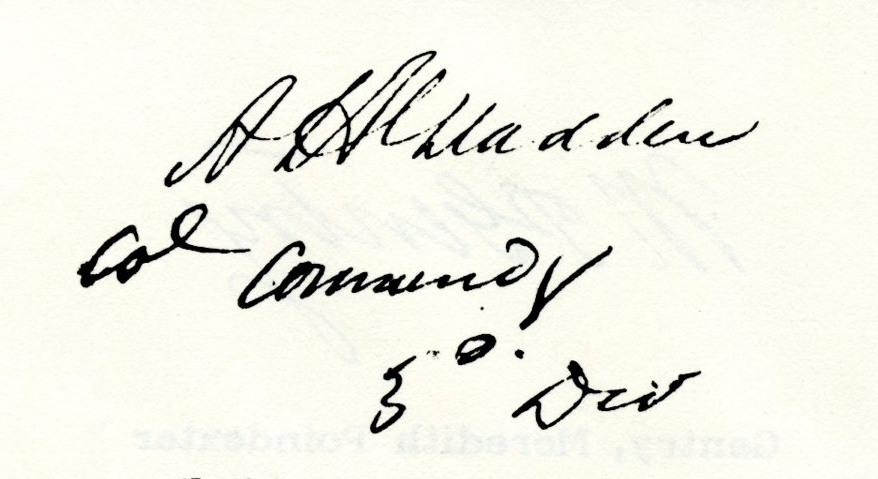 A H Gladden
Col Commandg
3d. Div
Gentry, Meredith Poindexter